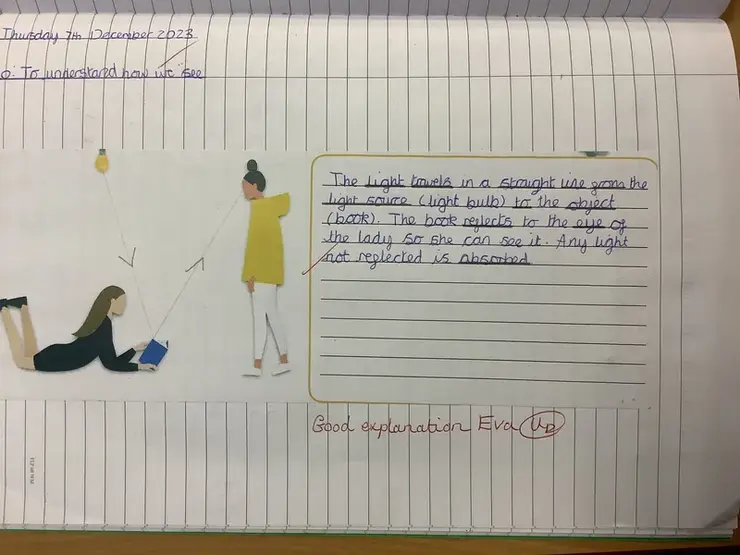 Thursday 7th December 2023
O: To understand how we see
The light travels in a straight line from the
light source (light bulb) to the object
(book). The book reflects to the eye of
the lady so she can see it. Any light
not reflected is absorbed
Good explanation Eva